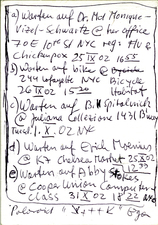 a) Warten auf Dr. Md Monique-
Vizel-Schwartz @ her office
70 E 10th St NYC regs Flu &
Chickenpox 25 IX 02 16 55
b) Warten auf bike @
244 Lafayette NYC Bicycle
26 IX 02 15 30 Habitat
c) Warten auf B.H. Spitalnick
@ Juliana Collezione 1431 Bway
1. X. 02 NYC
d) Warten auf Eric
@ K7 Chelsea Market 25 X 02
e) Warten auf Abby
@ Cooper Union Computer
class 31 X 02 18 22 NYC
Polaroid